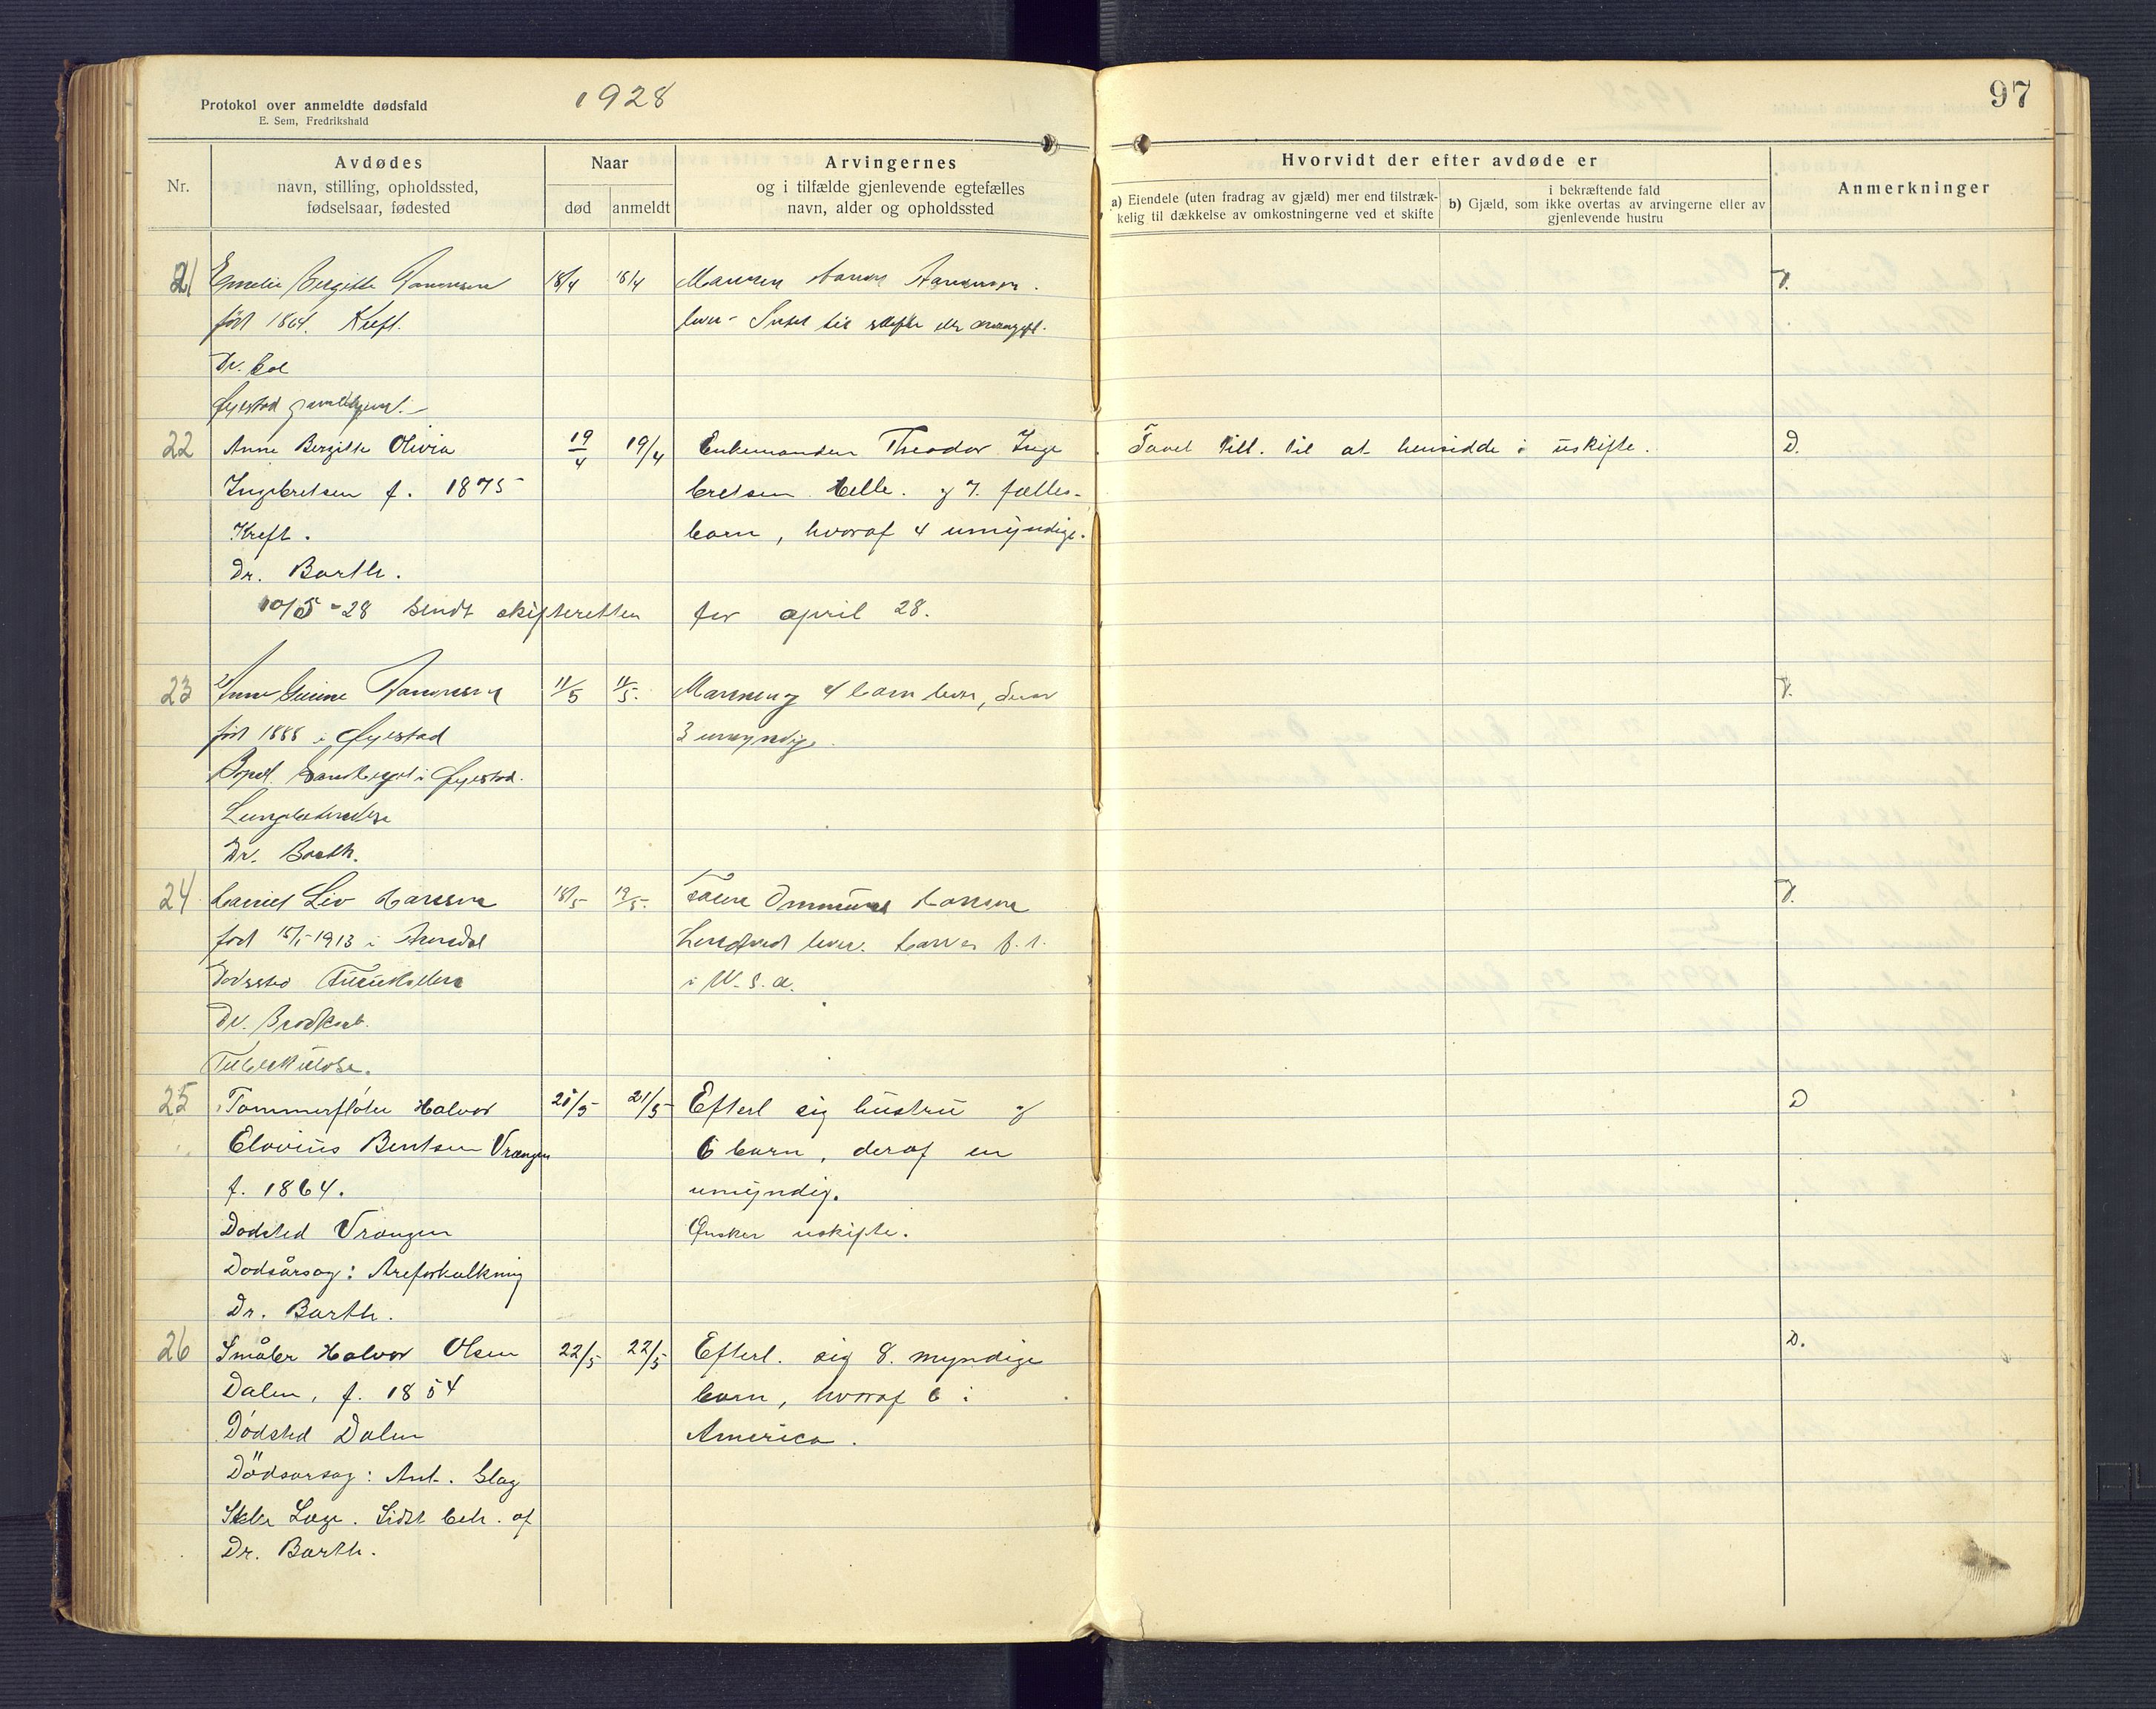 Protokol over anmeldte dødsfald
E. Sem, Fredrikshald
1928
97
Nr.
Avdødes
navn, stilling, opholdssted,
fødselsaar, fødested
Naar
død
anmeldt
Arvingernes
og i tilfælde gjenlevende egtefælles
navn, alder og opholdssted
Hvorvidt der efter avdøde er
a) Eiendele (uten fradrag av gjæld) mer end tilstræk-
kelig til dækkelse av omkostningerne ved et skifte
i bekræftende fald
b) Gjæld, som ikke overtas av arvingerne eller av
gjenlevende hustru
Anmerkninger
21 Emelie Birgitte 18/4 18/4 Manden
født 1864. Kreft. lever. Intet til skifte
Dr.
Øyestad gamlehjem.
22 Anne Bergitte Olivia 19/4 19/4 Enkemanden Theodor Inge Faaet till. til at hensidde i uskifte. D.
Ingebretsen f. 1875 bretsen Helle. og 7. fælles-
Kreft. barn, hvoraf 4 umyndige.
Dr. Barth.
10/5-28 sendt skifteretten for april 28.
23 11/5 11/5. Mannen og 4 barn lever, derav
født 1888 i Øyestad 3 umyndige.
i Øyestad.
Lungebetendelse
Dr. Barth.
24 Liv Hansen 18/5 19/5.
født 15/1-1913 i Arendal lever.
Dødssted i U.S.A.
Dr.
Tuberkulose.
25 Tømmerfløter Halvor 21/5 21/5 Efterl sig hustru og D
Elovius Bentsen Vrangen 6 barn, deraf en
f. 1864. umyndig.
Dødsted Vrangen Ønsker uskifte.
Dødsårsag: Areforkalkning
Dr. Barth.
26 Småbr Halvor Olsen 22/5 22/5 Efterl. sig 8. myndige D.
Dalen, f. 1854 barn, hvoraf 6 i
Dødsted Dalen America.
Dödsarsag: Ant. Slag
Ikke Læge. Sidst beh. af
Dr. Barth.